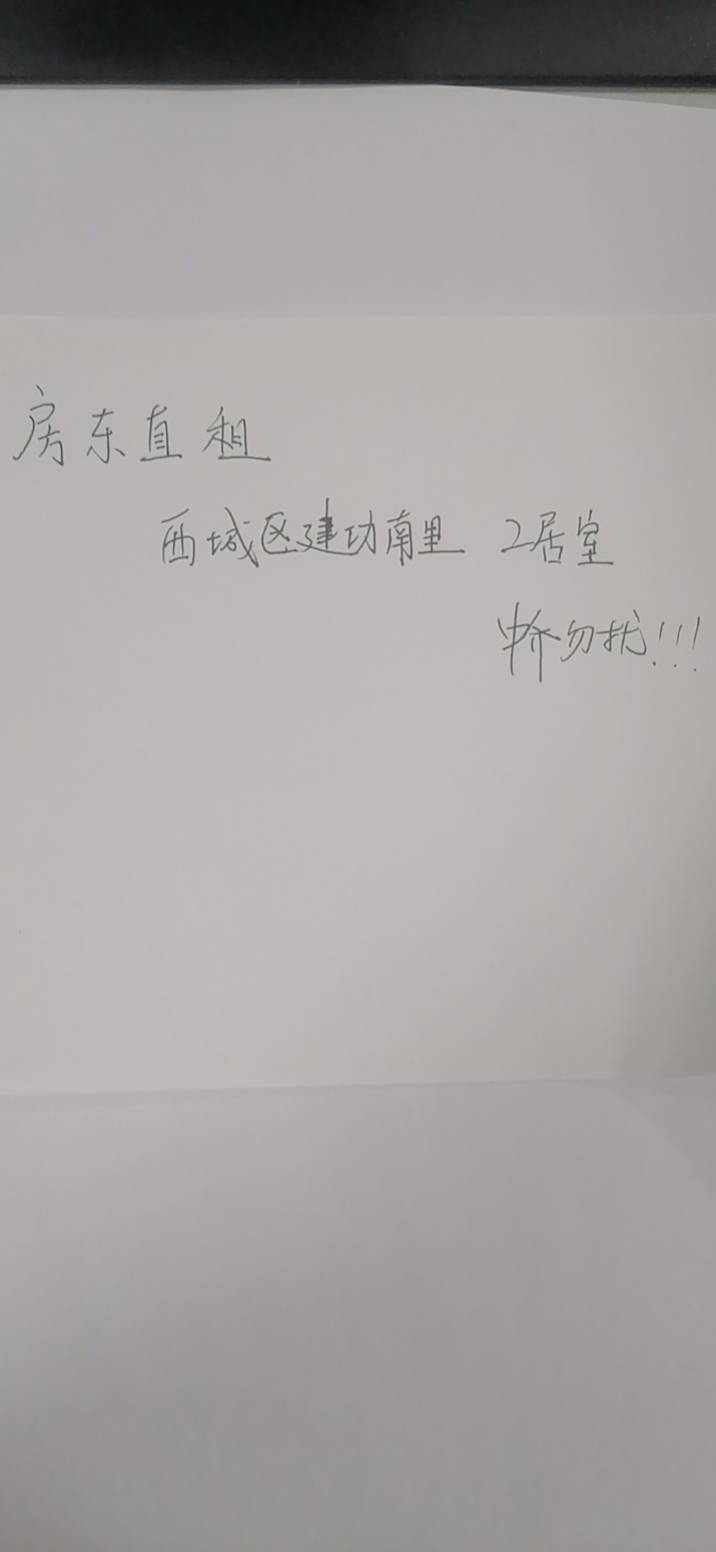 房东直租
西城区建功南里 2居室
中介勿扰!!!